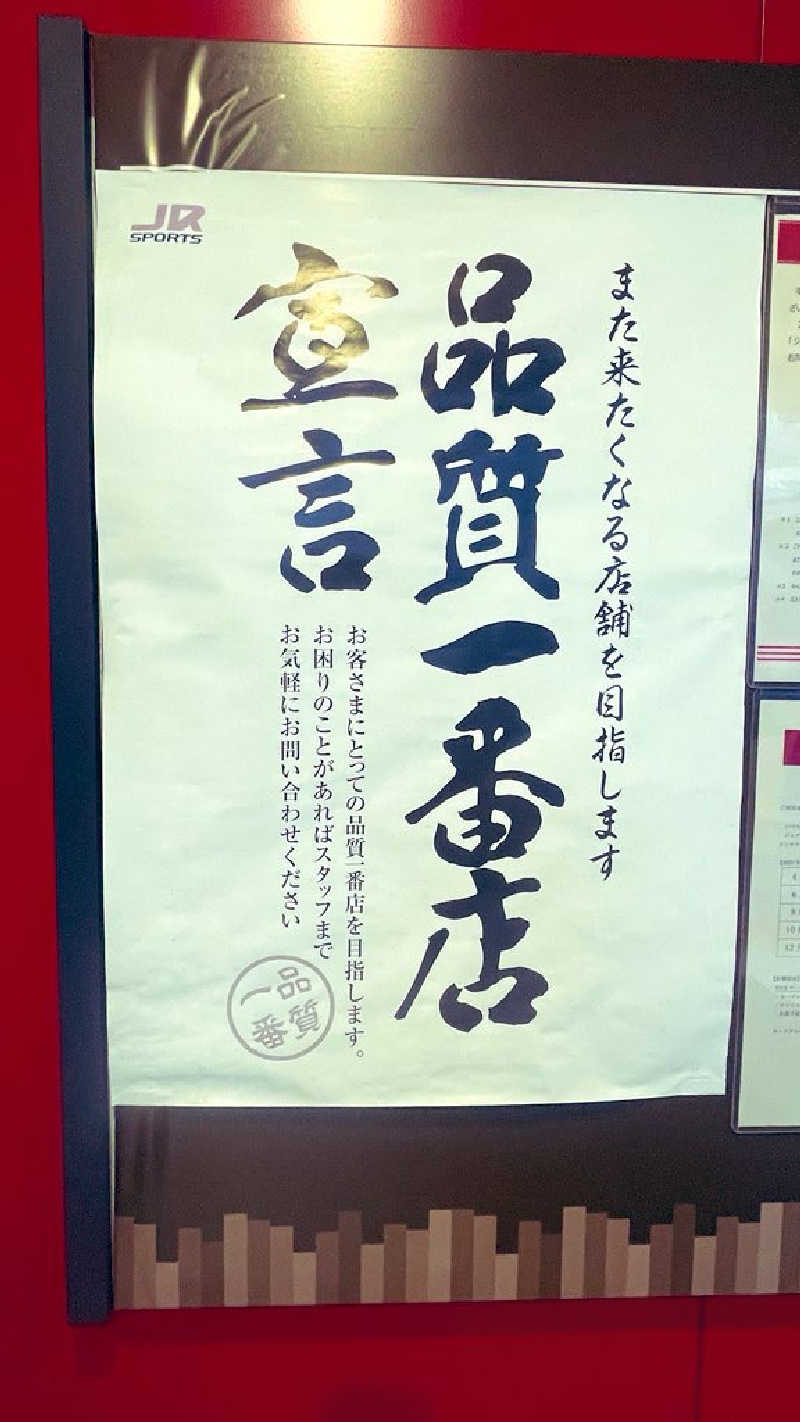 JR
SPORTS
また来たくなる店舗を目指します
品質一番店
宣言
お客さまにとっての品質一番店を目指します。
お困りのことがあればスタッフまで
お気軽にお問い合わせください
品質
一番